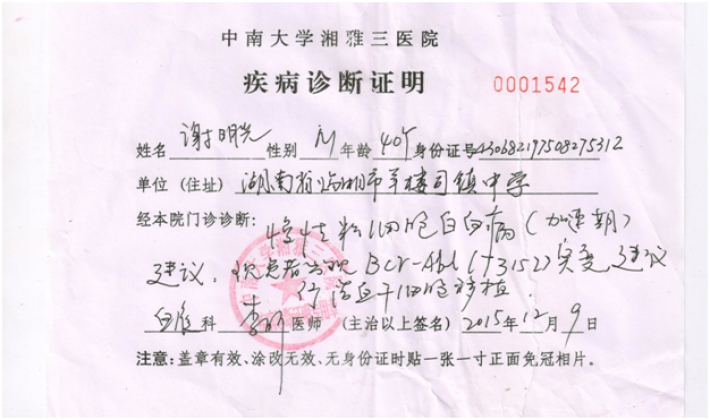 中南大学湘雅三医院
疾病诊断证明
0001542
姓名 谢明光 性别 M 年龄 40Y 身份证号 430682197508275312
单位（住址） 湖南省临湘市羊楼司镇中学
经本院门诊诊断： 慢性粒细胞白血病（加速期）
建议， 患者出现 Bcr-Abl (T315I) 突变，建议
行造血干细胞移植.
血液 科 医师 （主治以上签名） 2015 年 12 月 9 日
注意：盖章有效、涂改无效、无身份证时贴一张一寸正面免冠相片。